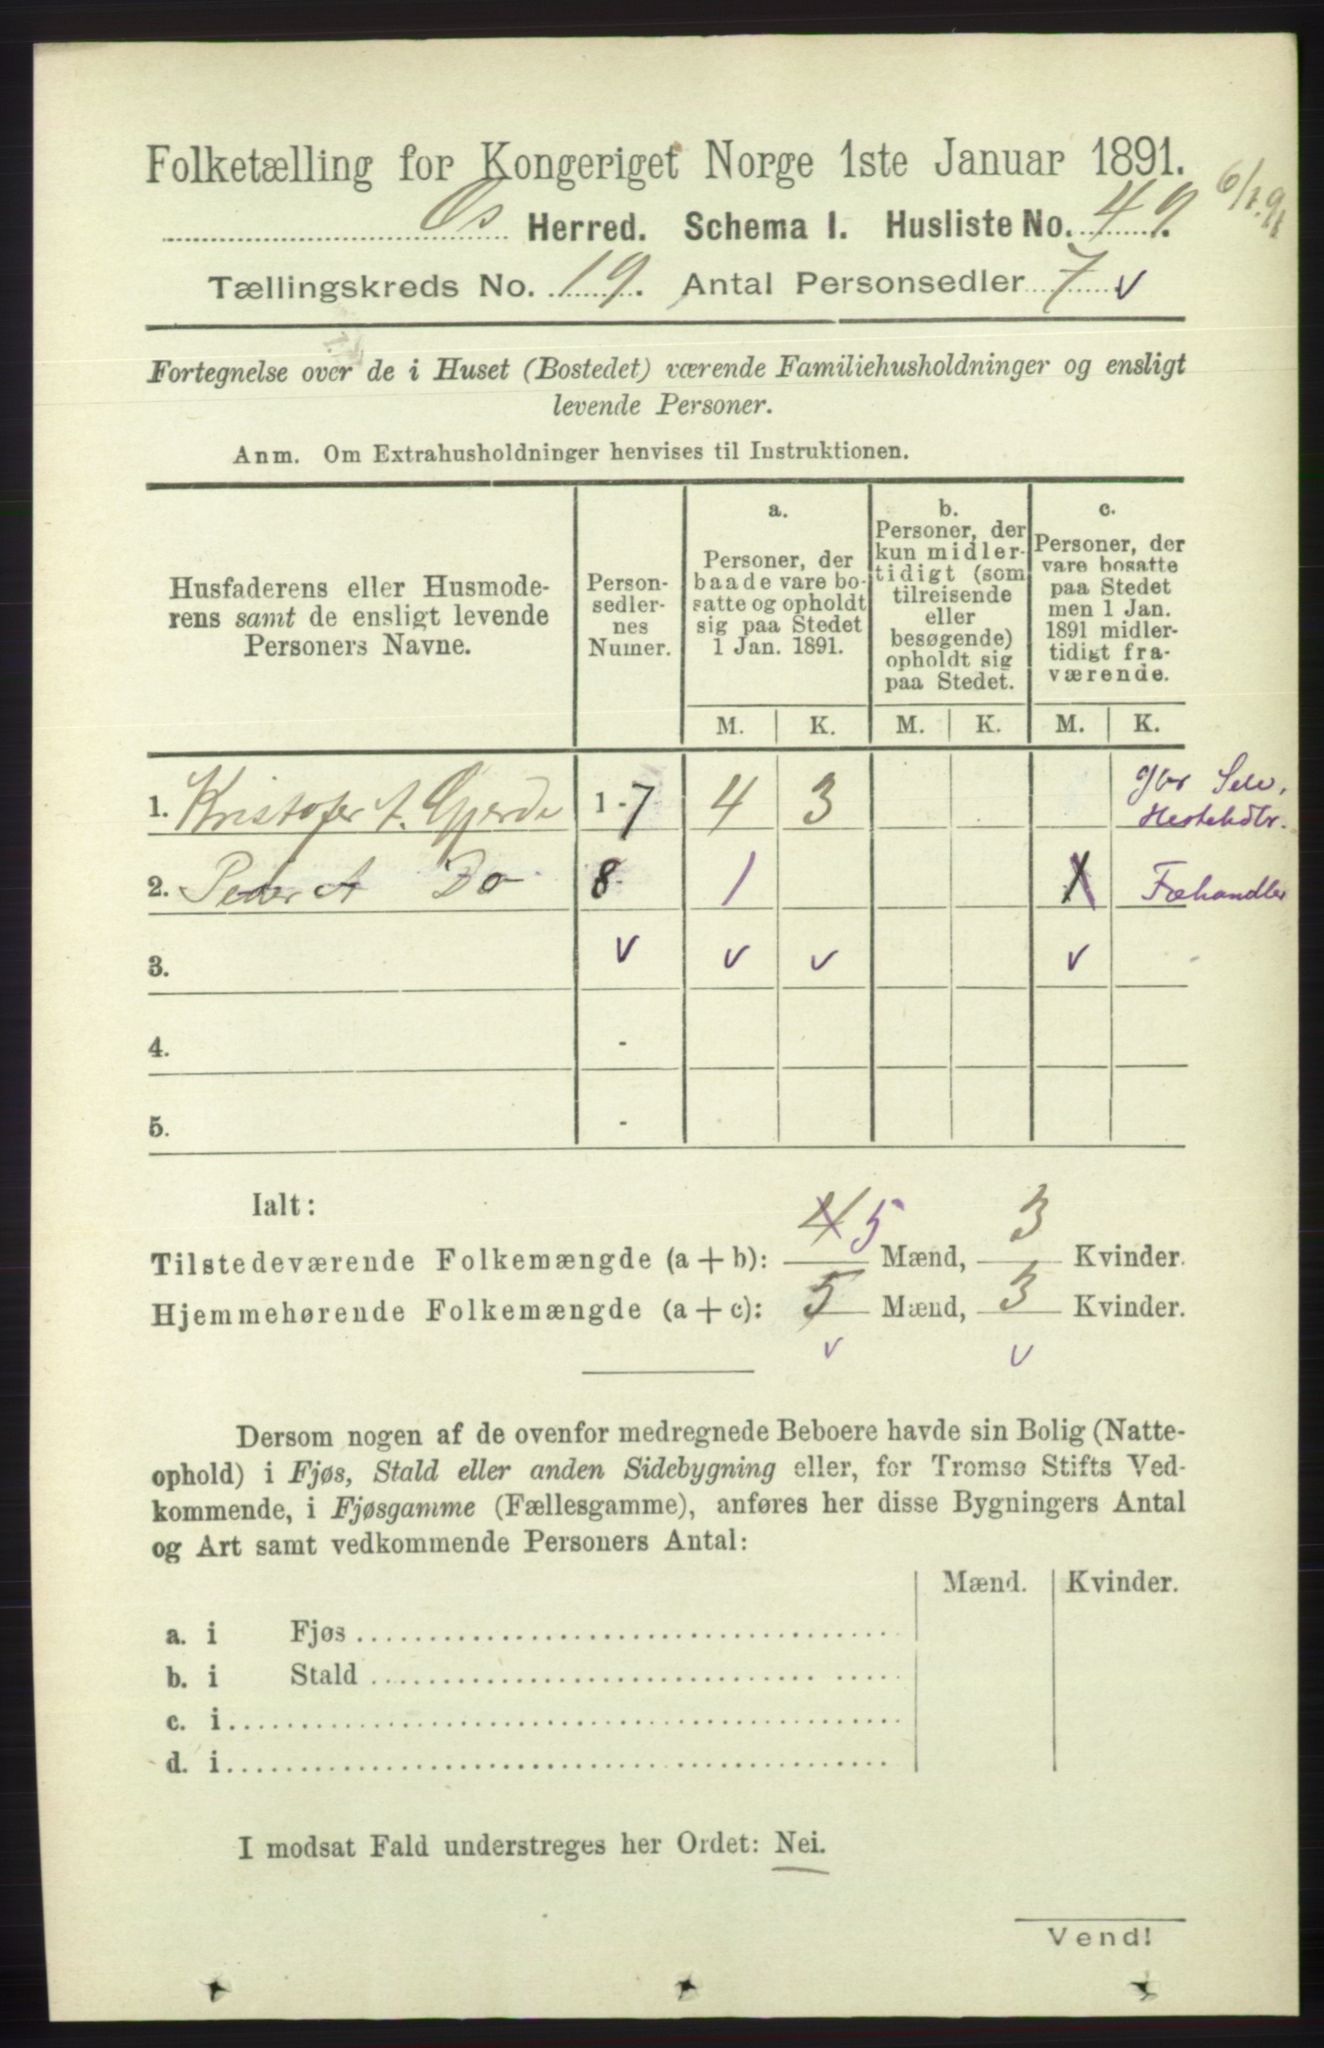 Folketælling for Kongeriget Norge 1ste Januar 1891.
Os Herred. Schema I. Husliste No. 49.
6/1.91
Tællingskreds No. 19. Antal Personsedler 7 v
Fortegnelse over de i Huset (Bostedet) værende Familiehusholdninger og ensligt
levende Personer.
Anm. Om Extrahusholdninger henvises til Instruktionen.
Husfaderens eller Husmode-
rens samt de ensligt levende
Personers Navne.
Person-
sedler-
nes
Numer.
a.
Personer, der
baade vare bo-
satte og opholdt
sig paa Stedet
1 Jan. 1891.
b.
Personer, der
kun midler-
tidigt (som
tilreisende
eller
besøgende)
opholdt sig
paa Stedet.
c.
Personer, der
vare bosatte
paa Stedet
men 1 Jan.
1891 midler-
tidigt fra-
værende.
M. K. M. K. M. K.
1. Kristofer A. Gjerde 1-7 4 3 gbr Selv.
Hestehdlr.
2. Peder A Do 8- 1 1 Fæhandler
3. v v v v
4. -
5. -
Ialt:
Tilstedeværende Folkemængde (a + b): 4 5 Mænd, 3 Kvinder.
Hjemmehørende Folkemængde (a + c): 5 Mænd, 3 Kvinder.
v v
Dersom nogen af de ovenfor medregnede Beboere havde sin Bolig (Natte-
ophold) i Fjøs, Stald eller anden Sidebygning eller, for Tromsø Stifts Ved-
kommende, i Fjøsgamme (Fællesgamme), anføres her disse Bygningers Antal
og Art samt vedkommende Personers Antal:
Mænd. Kvinder.
a. i Fjøs
b. i Stald
c. i
d. i
I modsat Fald understreges her Ordet: Nei.
Vend!